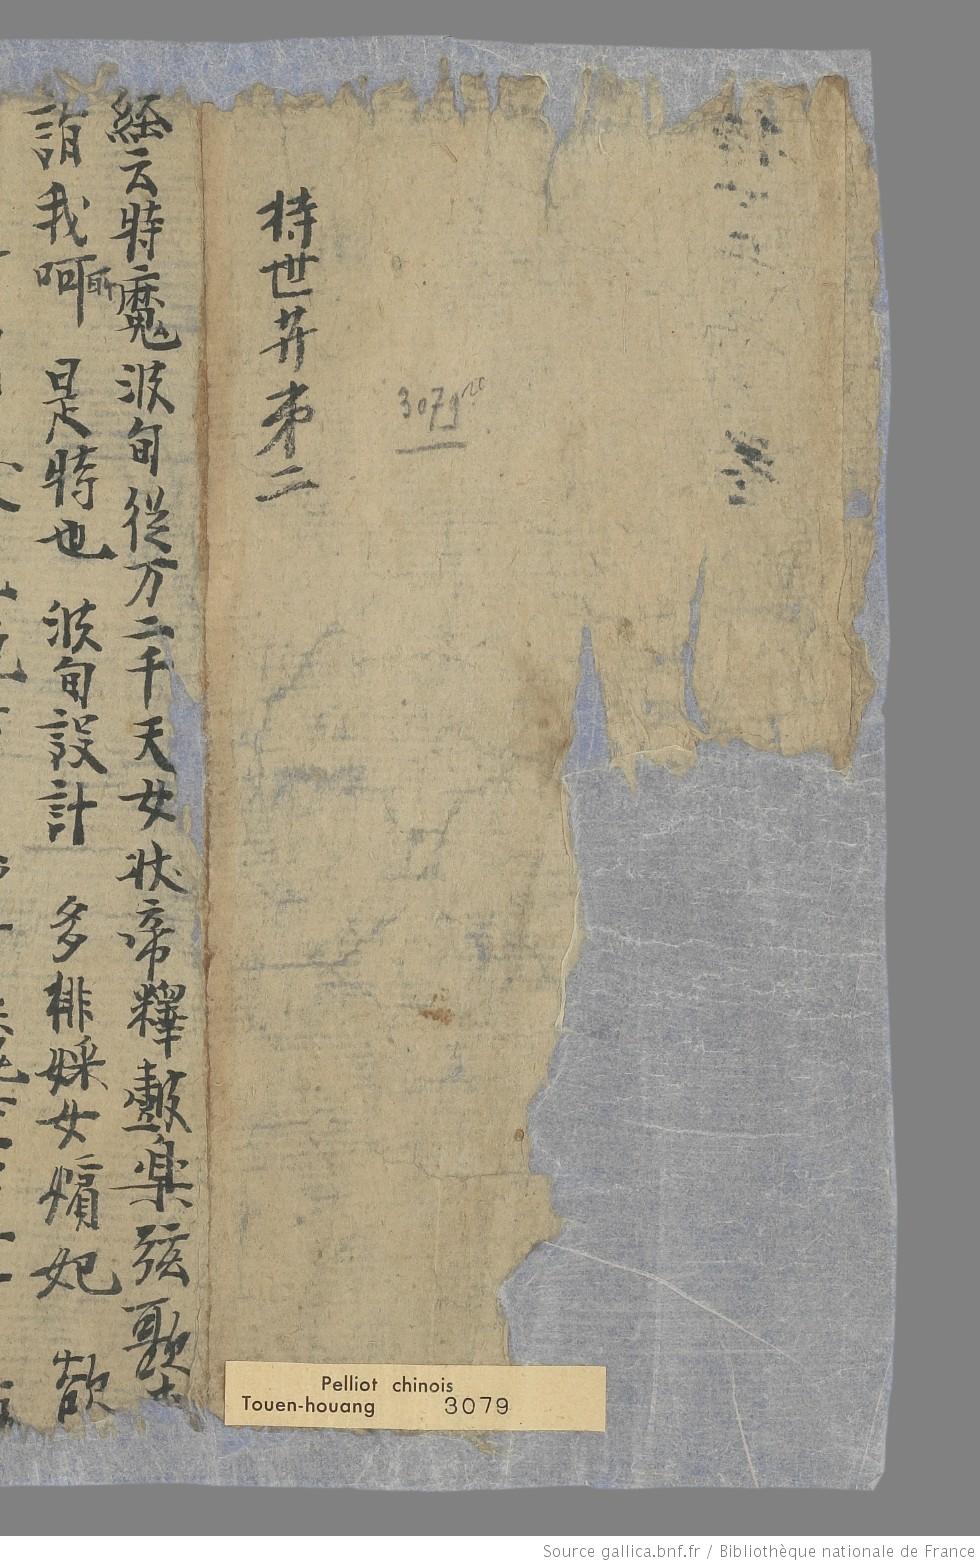 持世𦬇弟二
3079
経云時魔波旬從万二千天女狀帝釋鼓樂弦歌
詣我呵所 是時也 波旬設計 多排婇女嬪妃 欲
Pelliot chinois
Touen-houang 3079
Source gallica.bnf.fr / Bibliothèque nationale de France